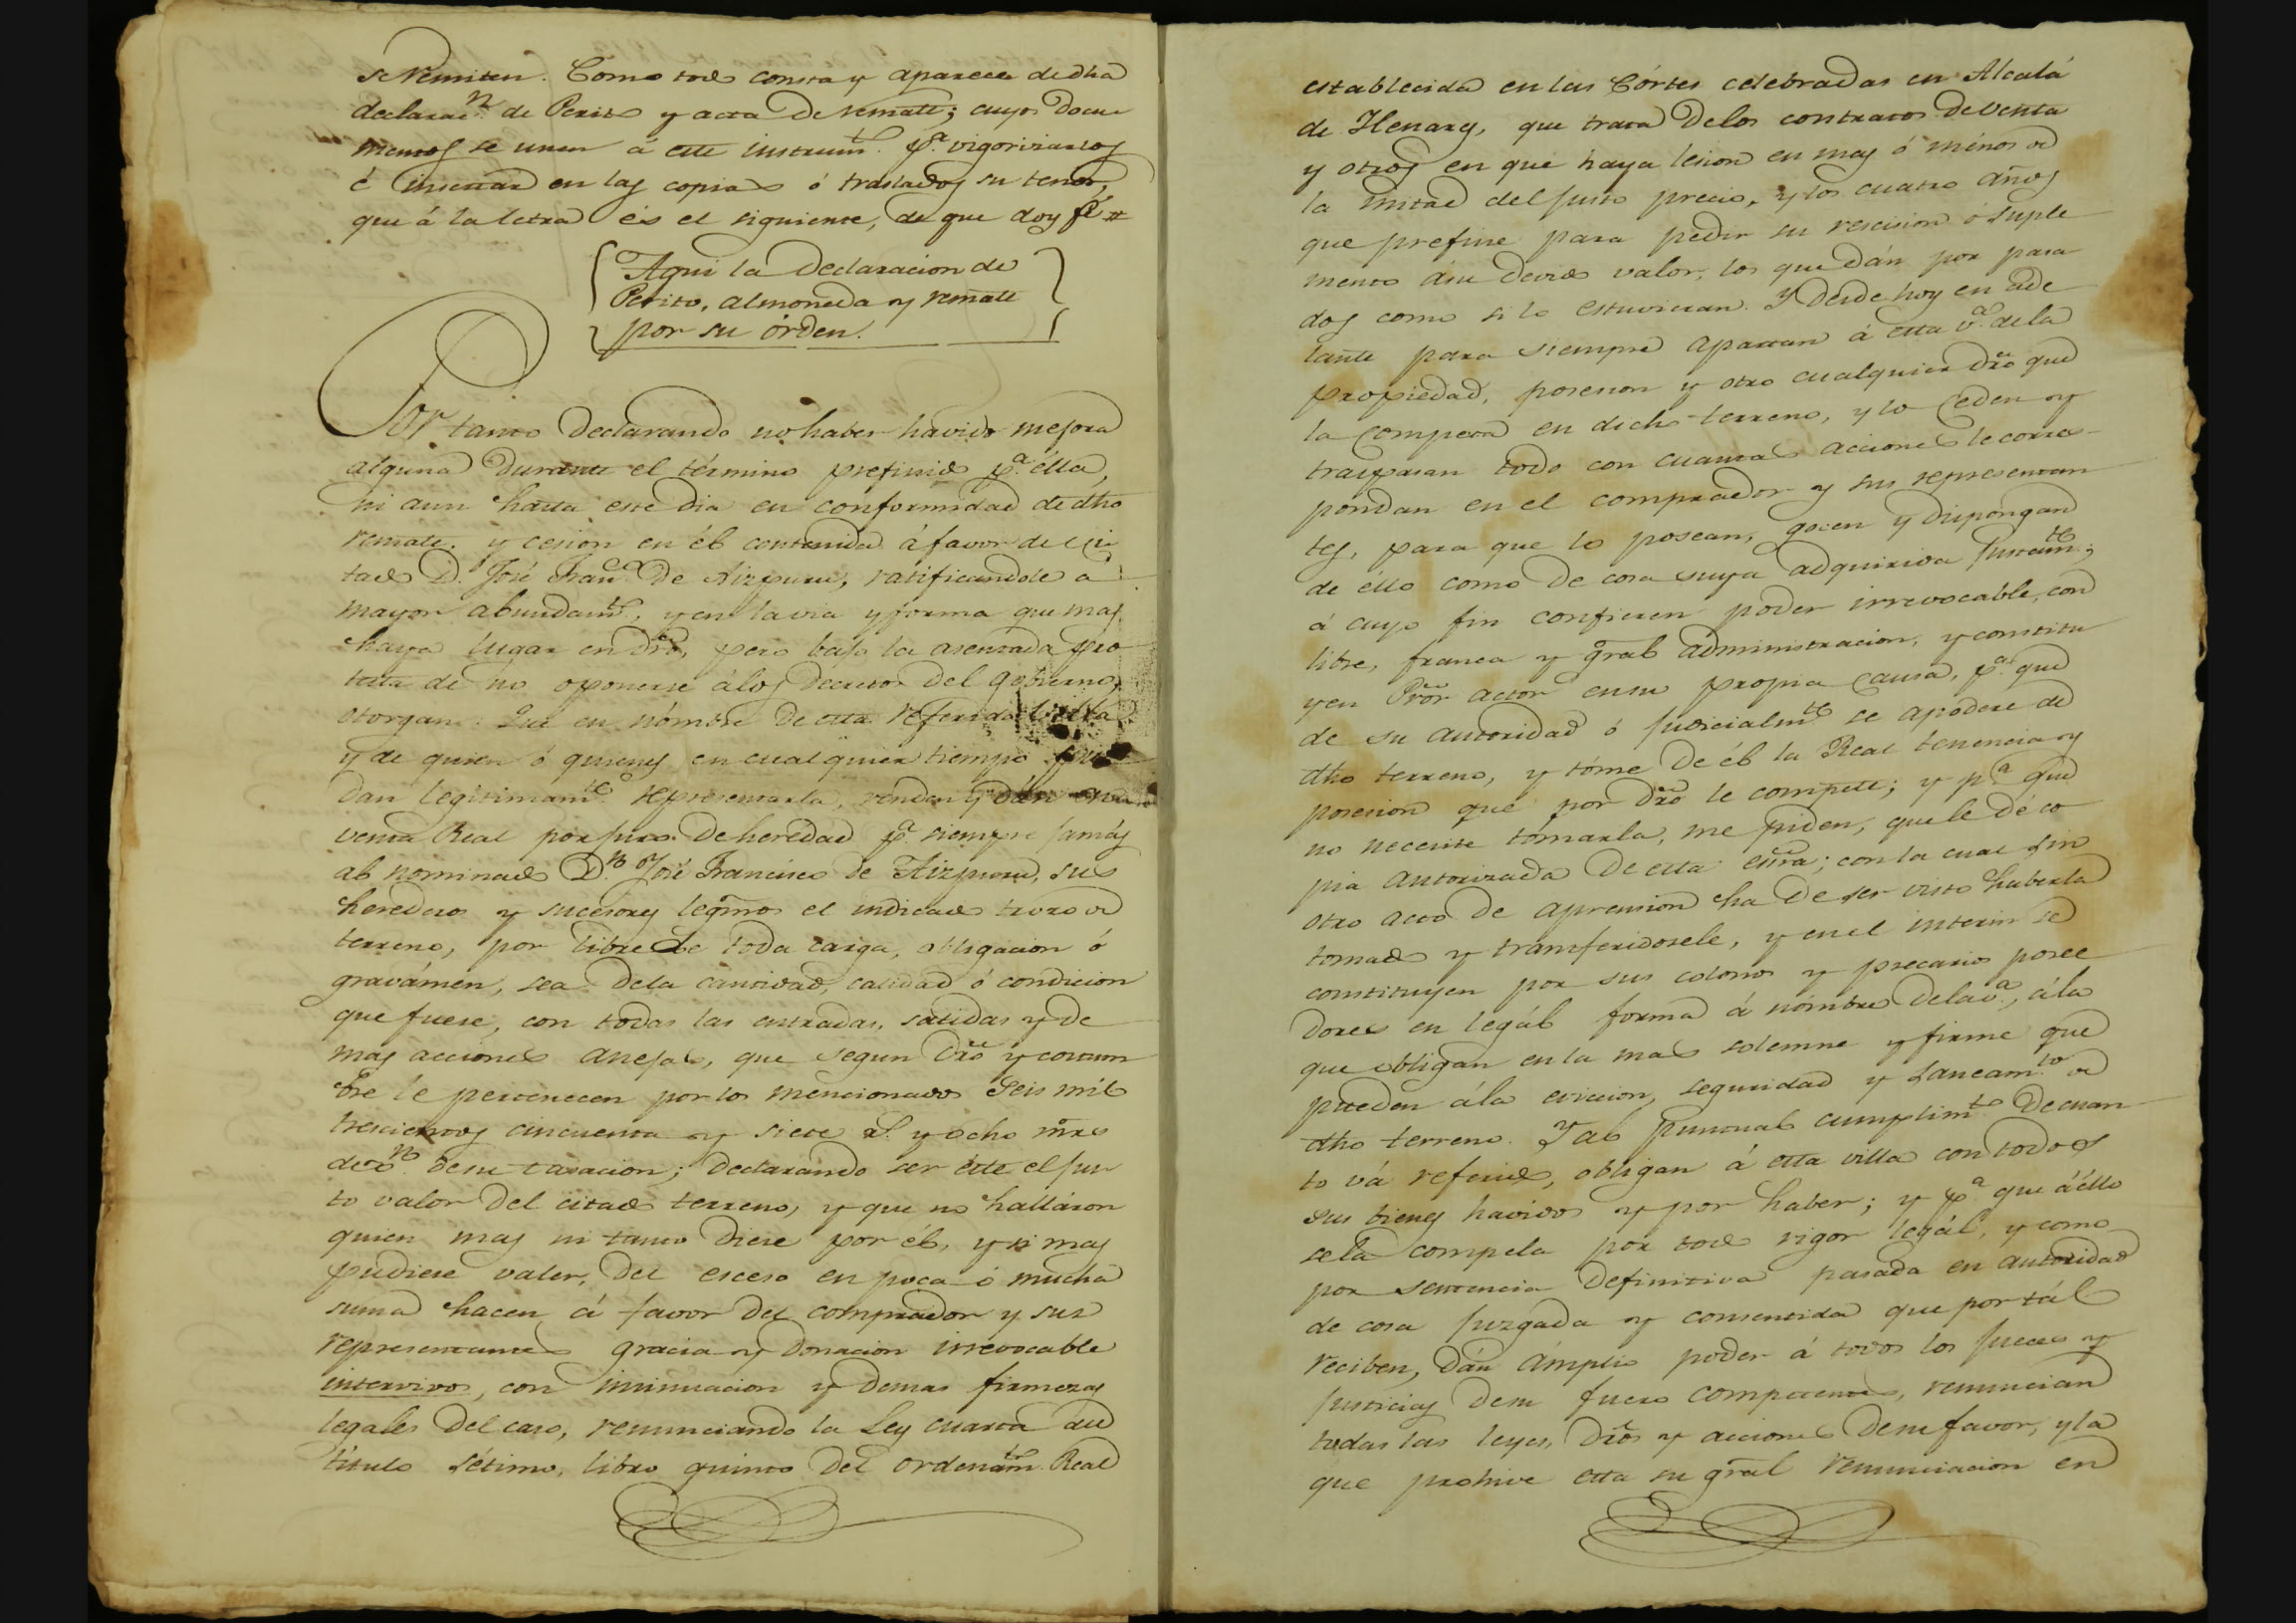 se remiten. Como todo consta y aparece de dha
declaracn. de Perito y acta de remate; cuyos docu
mentos se unen á este instrumto. pa. vigorizarlos
é insertar en las copias ó traslados su tenor,
que á la letra és el siguiente, de que doy fé
Aqui la Declaracion de
Perito, almoneda y remate
por su órden.
Por tanto declarando no haber havido mejora
alguna durante el término prefinido pa. élla,
ni aun hasta este dia en conformidad de dho
remate. y cesion en él contenida á favor del ci
tado D. José Franco. de Aizpuru, ratificandole á
mayor abundamto., y en la via y forma que mas
haya lugar en dro, pero bajo la asentada pro
testa de no oponerse á los decretos del gobierno,
otorgan: Que en nómbre de esta referida villa
y de quien ó quienes en cualquier tiempo pue
dan legitimamte. representarla, venden y dán en
venta Real por juro de herédad pa. siempre jamás
al nominado Dn. José Francisco de Aizpuru, sus
herederos y sucesores legmos el indicado trozo de
terreno, por libre de toda carga, obligacion ó
gravámen, sea de la cantidad, calidad ó condicion
que fuere, con todas las entradas, salidas y de
mas acciones anejas, que segun dro y costum
bre le pertenecen por los mencionados Seis mil
trescientos cincuenta y siete rs. y ocho mrs
de vn. de su tasacion; declarando ser este el jus
to valor del citado terreno, y que no halláron
quien mas ni tanto diese por él, y si mas
pudiese valer, del esceso en poca ó mucha
suma hacen á favor del comprador y sus
representantes gracia y donacion irrevocable
intervivos, con insinuacion y demas firmezas
legales del caso, renunciando la Ley cuarta del
titulo sétimo, libro quinto del ordenamto. Real
establecida en las Córtes celebradas en Alcalá
de Henares, que trata de los contratos de venta
y otros en que haya lesion en mas ó ménos de
la mitad del justo precio, y los cuatro años
que prefine para pedir su rescision ó suple
mento á su devido valor, los que dán por pasa
dos como si lo estuvieran. Y desde hoy en ade
lante para siempre apartan á esta va. de la
propiedad, posesion y otro cualquier dro que
la competa en dicho terreno, y lo ceden y
traspasan todo con cuantas acciones le corres
pondan en el comprador y sus representan
tes, para que lo posean, gocen y dispongan
de éllo como de cosa suya adquirida justamte.;
á cuyo fin confieren poder irrevocable, con
libre, franca y gral administracion, y constitu
yen Pror actor en su propia causa, pa. que
de su autoridad ó judicialmte. se apodere de
dho terreno, y tóme de él la Real tenencia y
posesion que por dro le compete; y pa. que
no necesite tomarla, me piden, que le dé co
pia autorizada de esta esra; con la cual sin
otro acto de aprension ha de ser visto haberla
tomado y transferidosele, y en el interin se
constituyen por sus colonos y precarios posee
dores en legál forma á nómbre de la va., á la
que obligan en la mas solemne y firme que
pueden á la eviccion, seguridad y saneamto. de
dho terreno. Y al puntual cumplimto. de cuan
to vá referido, obligan á esta villa con todos
sus bienes havidos y por haber; y pa. que á éllo
se la compela por todo rigor legál, y como
por sentencia definitiva pasada en autoridad
de cosa juzgada y consentida que por tál
reciben, dán ámplio poder á todos los jueces y
justicias de su fuero competentes, renuncian
todas las leyes, dros y acciones de su favor, y la
que prohive esta su gral renunciacion en